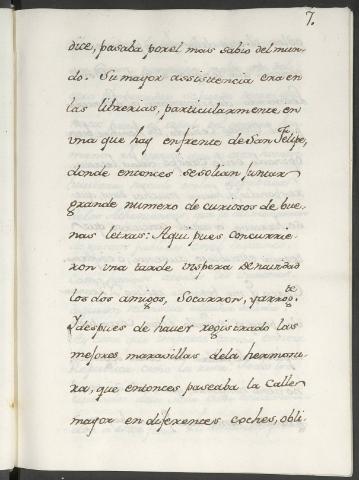 7.
dice, pasaba porel mas sabio del mun-
do. Su mayor assistencia era en
las librerias, particularmente en
vna que hay enfrente de San Felipe,
donde entonces se solian juntar
grande numero de curiosos de bue-
nas letras: Aqui pues concurrie-
ron vna tarde vispera de nauidad
los dos amigos, Socarron, yarrogte.
Y despues de hauer registrado las
mejores marauillas dela hermosu-
ra, que entonces paseaba la Calle
mayor en diferentes coches, obli-